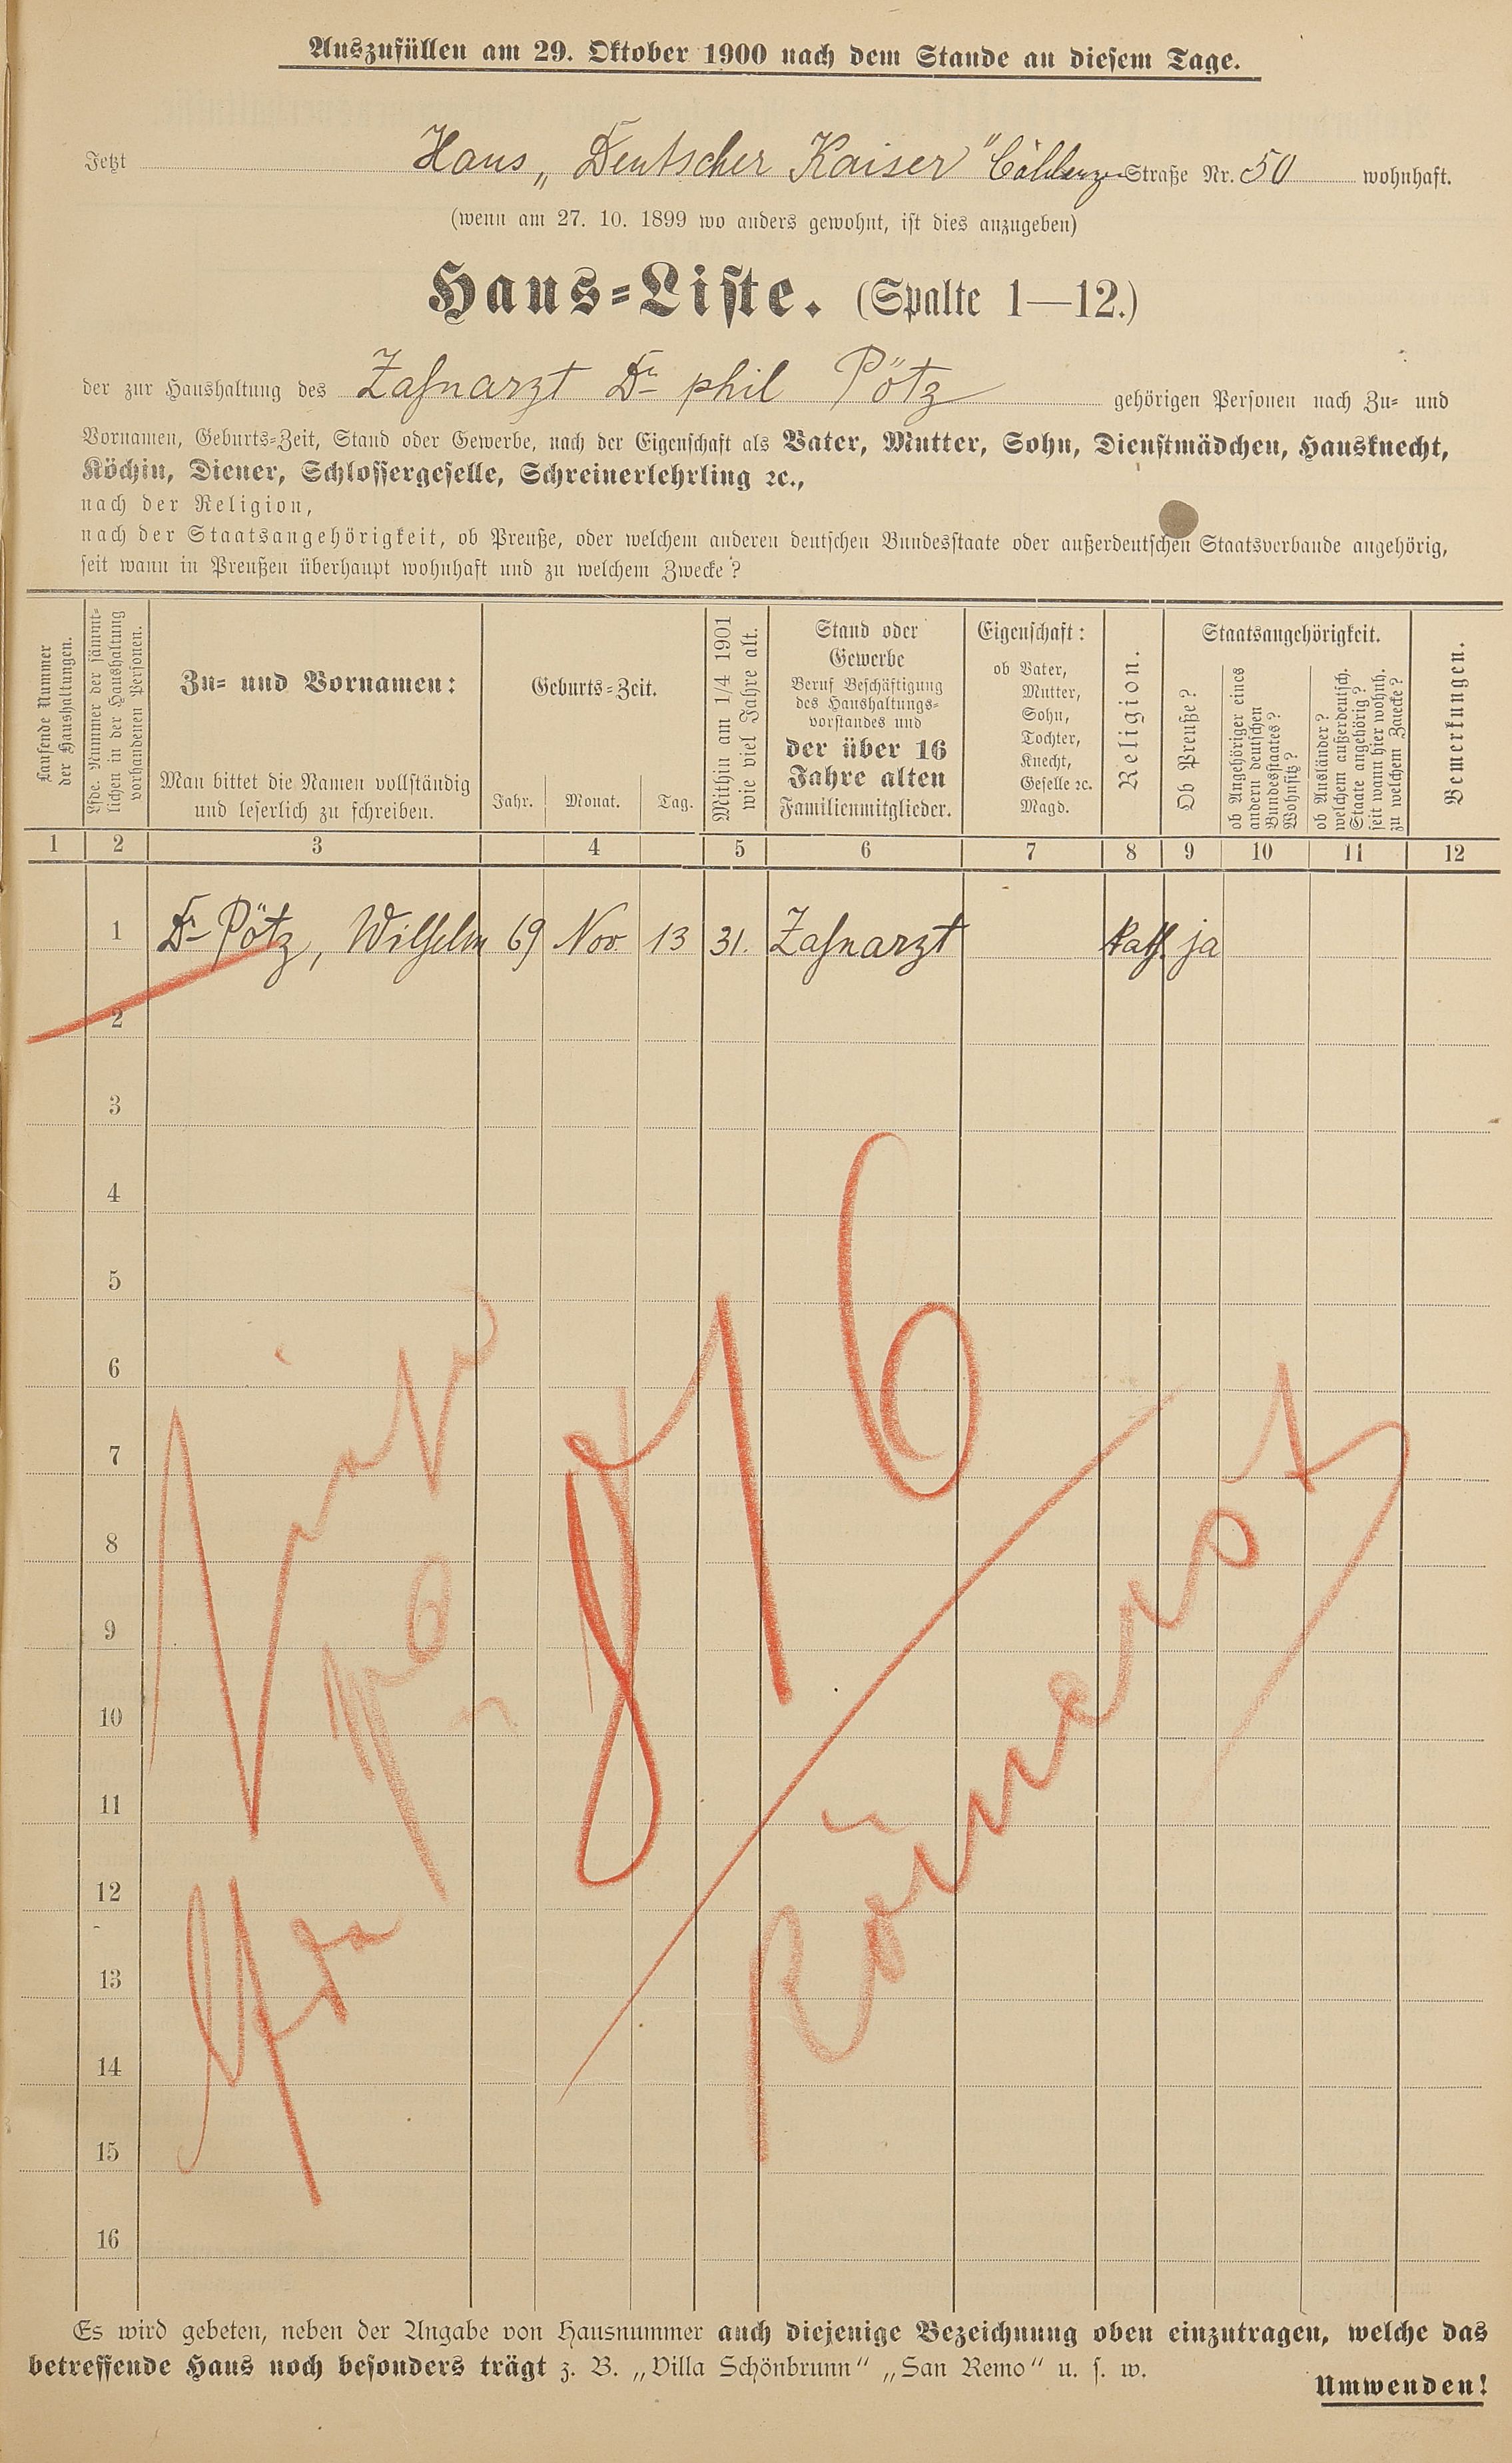 Auszufüllen am 29. Oktober 1900 nach dem Stande an diesem Tage.
Jetzt Haus „Deutscher Kaiser“ Straße Nr. 50 wohnhaft.
(wenn am 27. 10. 1899 wo anders gewohnt, ist dies anzugeben)
Haus-Liste. (Spalte 1—12.)
der zur Haushaltung des Zahnarzt Dr phil Pötz gehörigen Personen nach Zu- und
Vornamen, Geburts-Zeit, Stand oder Gewerbe, nach der Eigenschaft als Vater, Mutter, Sohn, Dienstmädchen, Hausknecht,
Köchin, Diener, Schlossergeselle, Schreinerlehrling ꝛc.,
nach der Religion,
nach der Staatsangehörigkeit, ob Preuße, oder welchem anderen deutschen Bundesstaate oder außerdeutschen Staatsverbande angehörig,
seit wann in Preußen überhaupt wohnhaft und zu welchem Zwecke?
Laufende Nummer
der Haushaltungen.
Lfde. Nummer der sämmt-
lichen in der Haushaltung
vorhandenen Personen.
Zu- und Vornamen:
Man bittet die Namen vollständig
und leserlich zu schreiben.
Geburts-Zeit.
Jahr. Monat. Tag.
Mithin am 1/4 1901
wie viel Jahre alt.
Stand oder
Gewerbe
Beruf Beschäftigung
des Haushaltungs-
vorstandes und
der über 16
Jahre alten
Familienmitglieder.
Eigenschaft:
ob Vater,
Mutter,
Sohn,
Tochter,
Knecht,
Geselle ꝛc.
Magd.
Religion.
Staatsangehörigkeit.
Ob Preuße?
ob Angehöriger eines
andern deutschen
Bundesstaates?
Wohnsitz?
ob Ausländer?
welchem außerdeutsch.
Staate angehörig?
seit wann hier wohnh.
zu welchem Zwecke?
Bemerkungen.
1 2 3 4 5 6 7 8 9 10 11 12
1 Dr Pötz, Wilhelm 69 Nov. 13 31. Zahnarzt kath. ja
2
3
4
5
6
7
8
9
10
11
12
13
14
15
16
Es wird gebeten, neben der Angabe von Hausnummer auch diejenige Bezeichnung oben einzutragen, welche das
betreffende Haus noch besonders trägt z. B. „Villa Schönbrunn“ „San Remo“ u. s. w.
Umwenden!